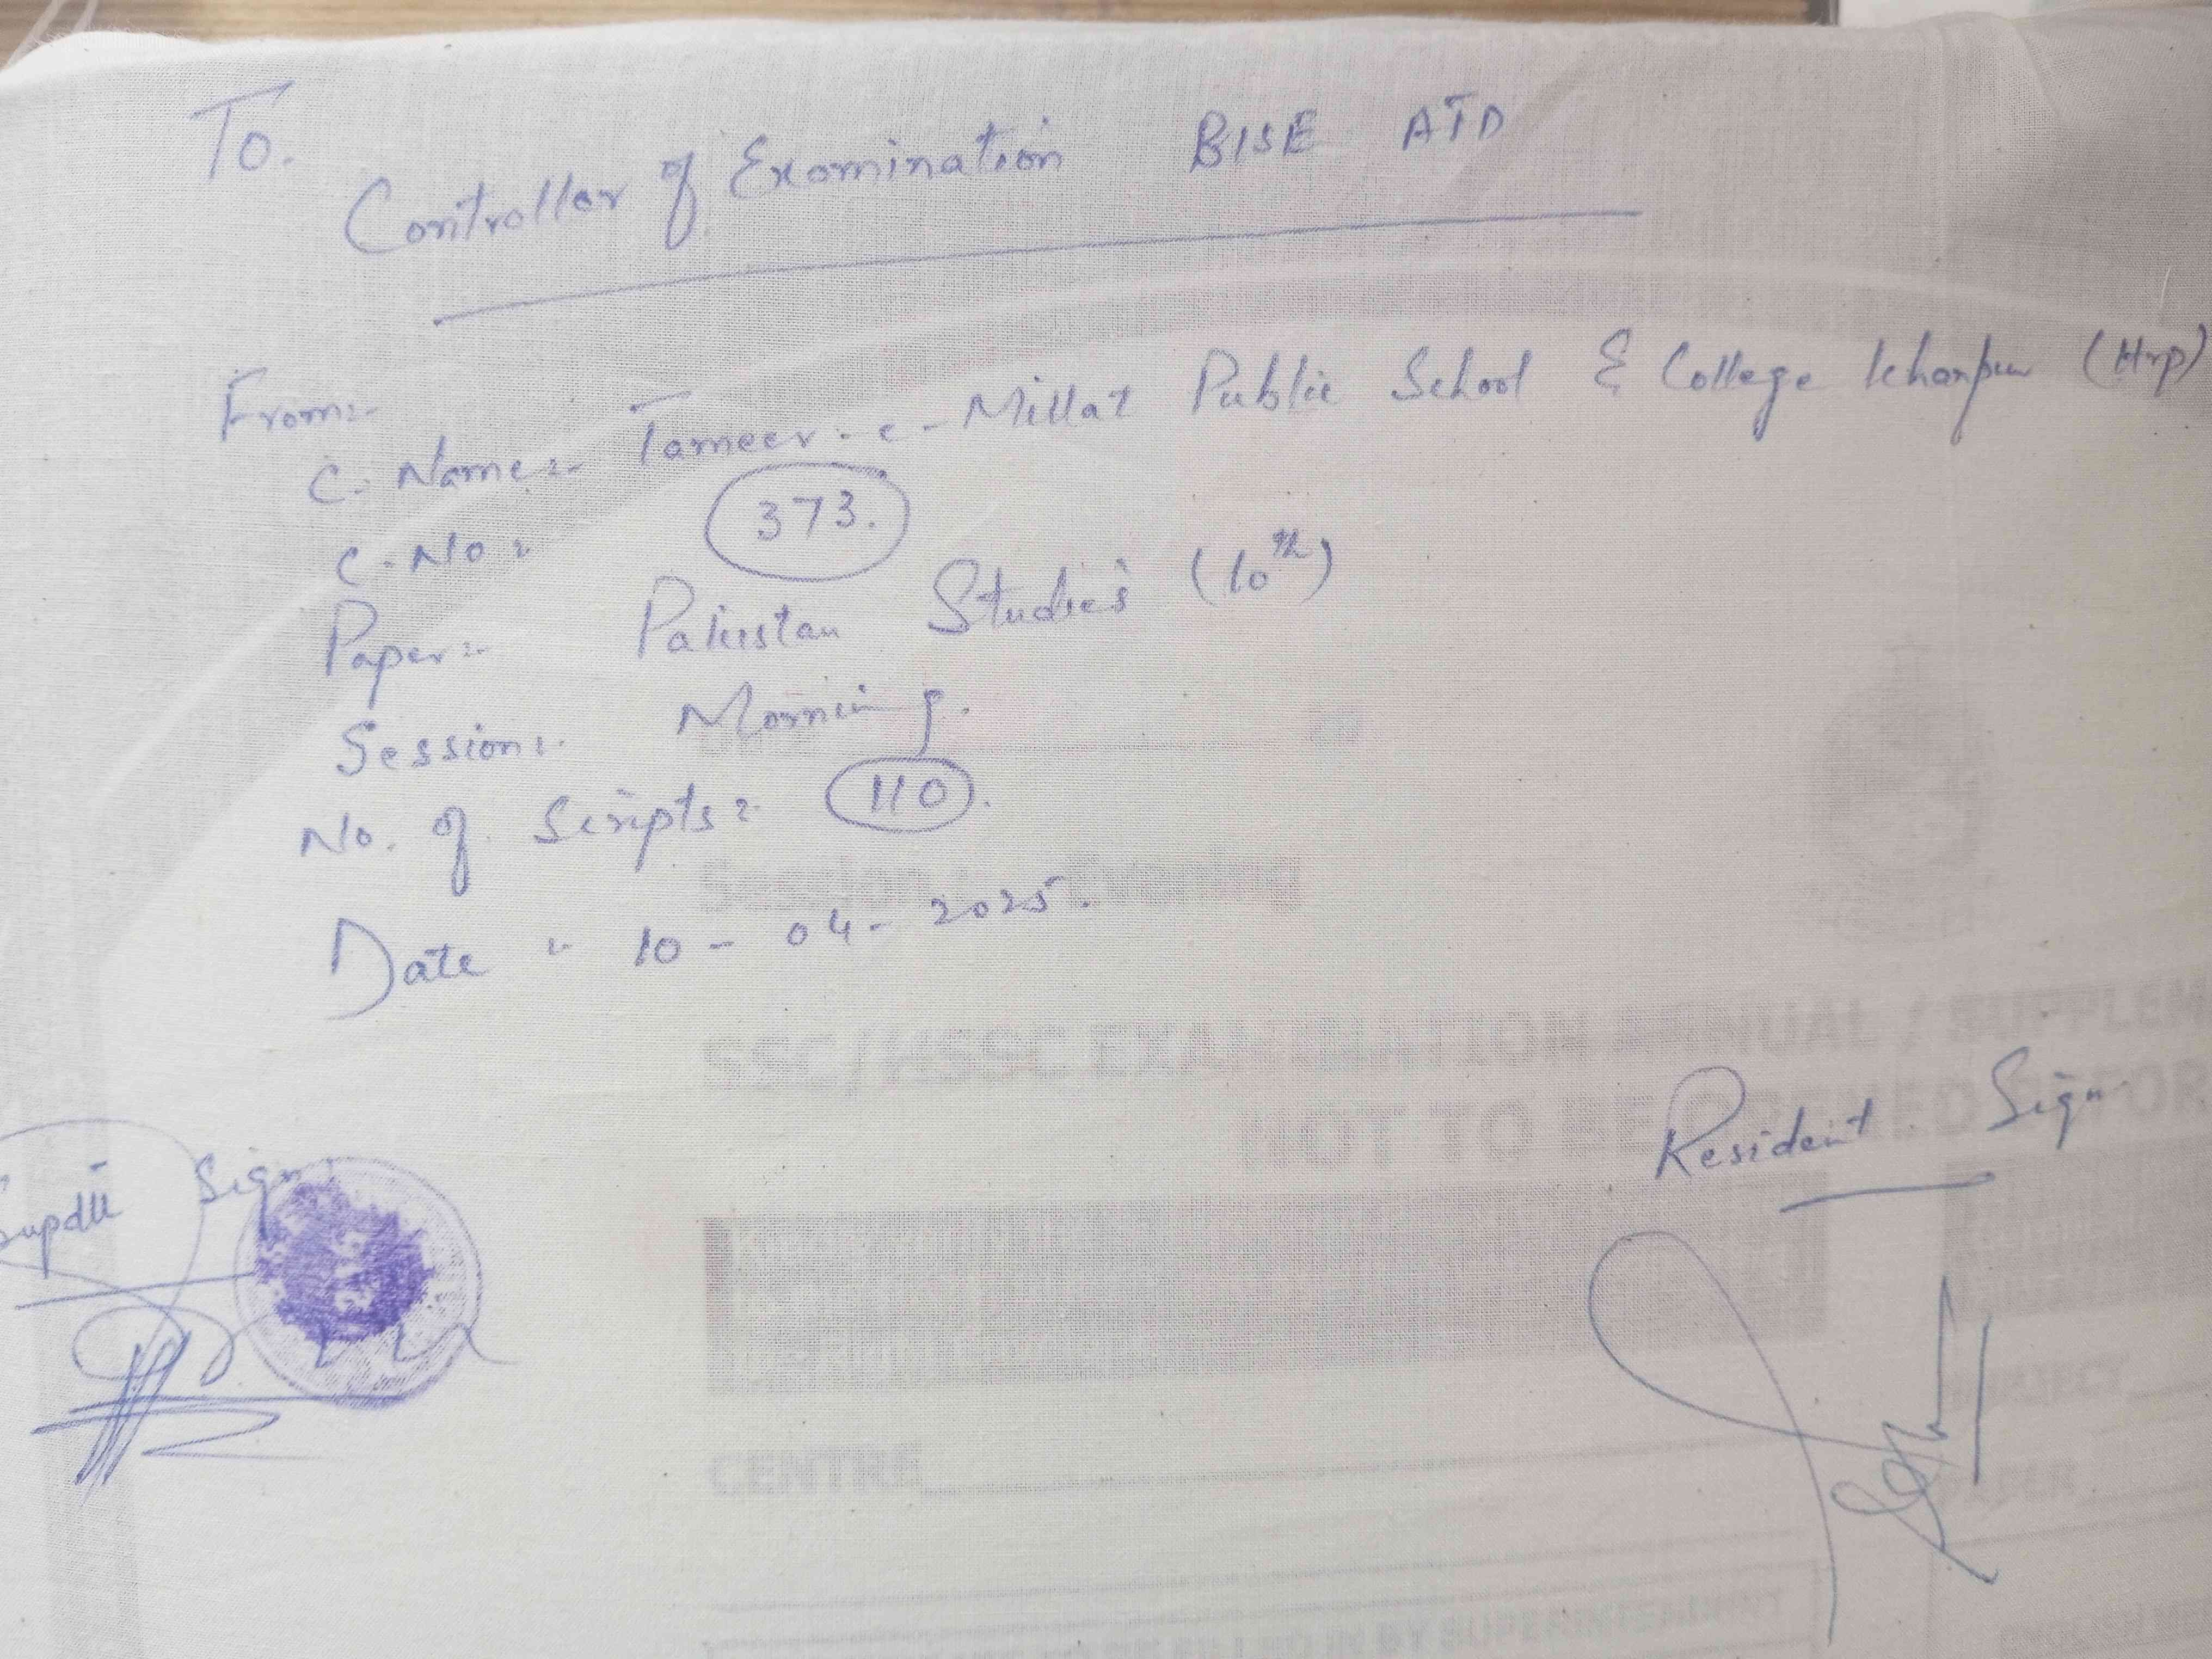 To.
Controller of Examination BISE ATD
From:-
C. Name:- Tameer-e-Millat Public School & College Khanpur (Hrp)
C. No:- 373.
Paper:- Pakistan Studies (10th)
Session:- Morning.
No. of Scripts:- 110.
Date :- 10 - 04 - 2025.
Supdtt Sign
Resident Sign
Session : Evening
SSC/HSSC EXAMINATION ANNUAL / SUPPLEM
NOT TO BE OPENED BEFOR
SUBJECT
CENTRE
PAPER